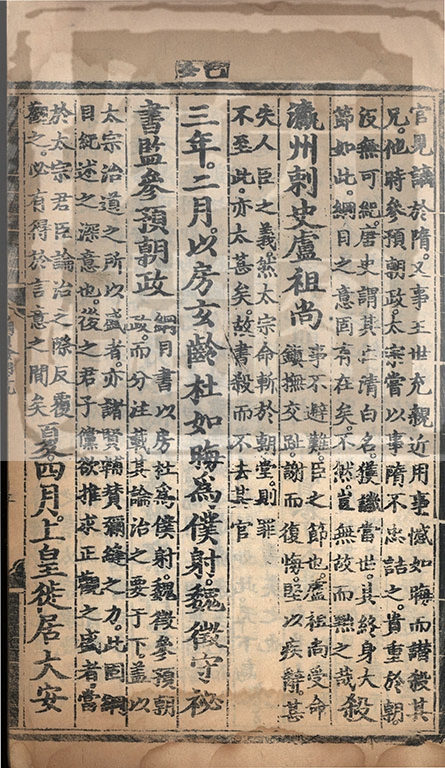 己丑
官見讒於隋。又事王世充親近用事憾如晦而譖殺其
兄。他時參預朝政。太宗嘗以事隋不忠詰之。貴重於朝。
汲無可紀。唐史謂其亡隋白名。獲譏當世。其終身大
節如此。綱目之意固有在矣。不然豈無故而黜之哉
殺
瀛州刺史盧祖尚
事不避難。臣之節也。盧祖尚受命
鎮撫交趾。謝而復悔。堅以疾辭。甚
失人臣之義。然太宗命斬於朝堂。則罪
不至此。亦太甚矣。故書殺而不去其官
三年。二月。以房玄齡杜如晦。為僕射。魏徵守祕
書監參預朝政
綱目書以房杜為僕射。魏徵參預朝
政。而分注載其論治之要于下。蓋以
太宗治道之所以盛者。亦諸賢輔贊彌縫之力。此固綱
目紀述之深意也。後之君子儻欲推求正觀之盛者。當
於太宗君臣論治之際反覆
觀之。必有得於言意之間矣
夏四月。上皇徙居大安